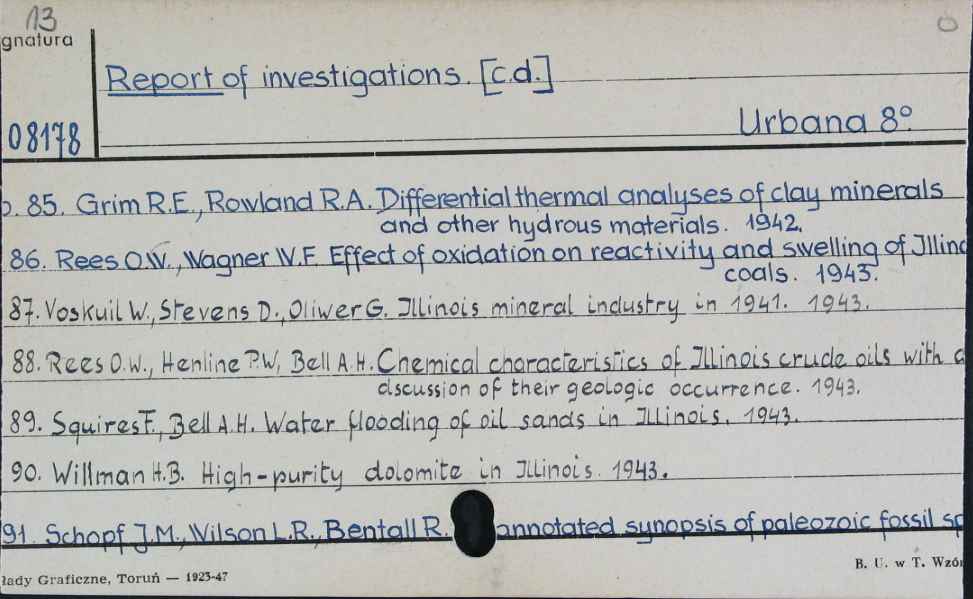 13
gnatura
Report of investigations. [c.d.]
08178
Urbana 8°
85. Grim R.E., Rowland R.A. Differential thermal analyses of clay minerals
and other hydrous materials. 1942.
86. Rees O.W., Wagner W.F. Effect of oxidation on reactivity and swelling of Illino
coals. 1943.
87. Voskuil W., Stevens D., Oliwer G. Illinois mineral industry in 1941. 1943.
88. Rees O.W., Henline P.W., Bell A.H. Chemical characteristics of Illinois crude oils with a
dscussion of their geologic occurrence. 1943.
89. Squires F., Bell A.H. Water flooding of oil sands in Illinois. 1943.
90. Willman H.B. High-purity dolomite in Illinois. 1943.
91. Schopf J.M., Wilson L.R., Bentall R. annotated synopsis of paleozoic fossil sp
łady Graficzne, Toruń — 1923-47
B. U. w T. Wzór